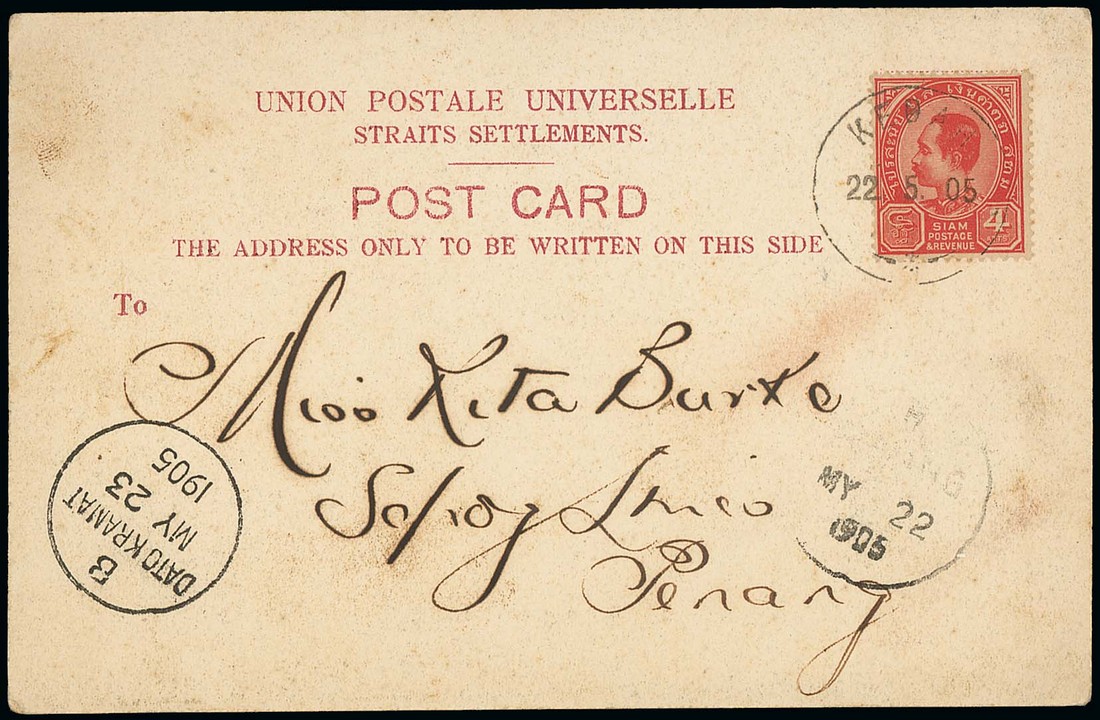 UNION POSTALE UNIVERSELLE
STRAITS SETTLEMENTS.
POST CARD
THE ADDRESS ONLY TO BE WRITTEN ON THIS SIDE
To
Miss Rita Burke
Sepoy Lines
Penang
22.5.05
สยาม
4
SIAM
POSTAGE
& REVENUE
MY 22
1905
B
DATO KRAMAT
MY 23
1905